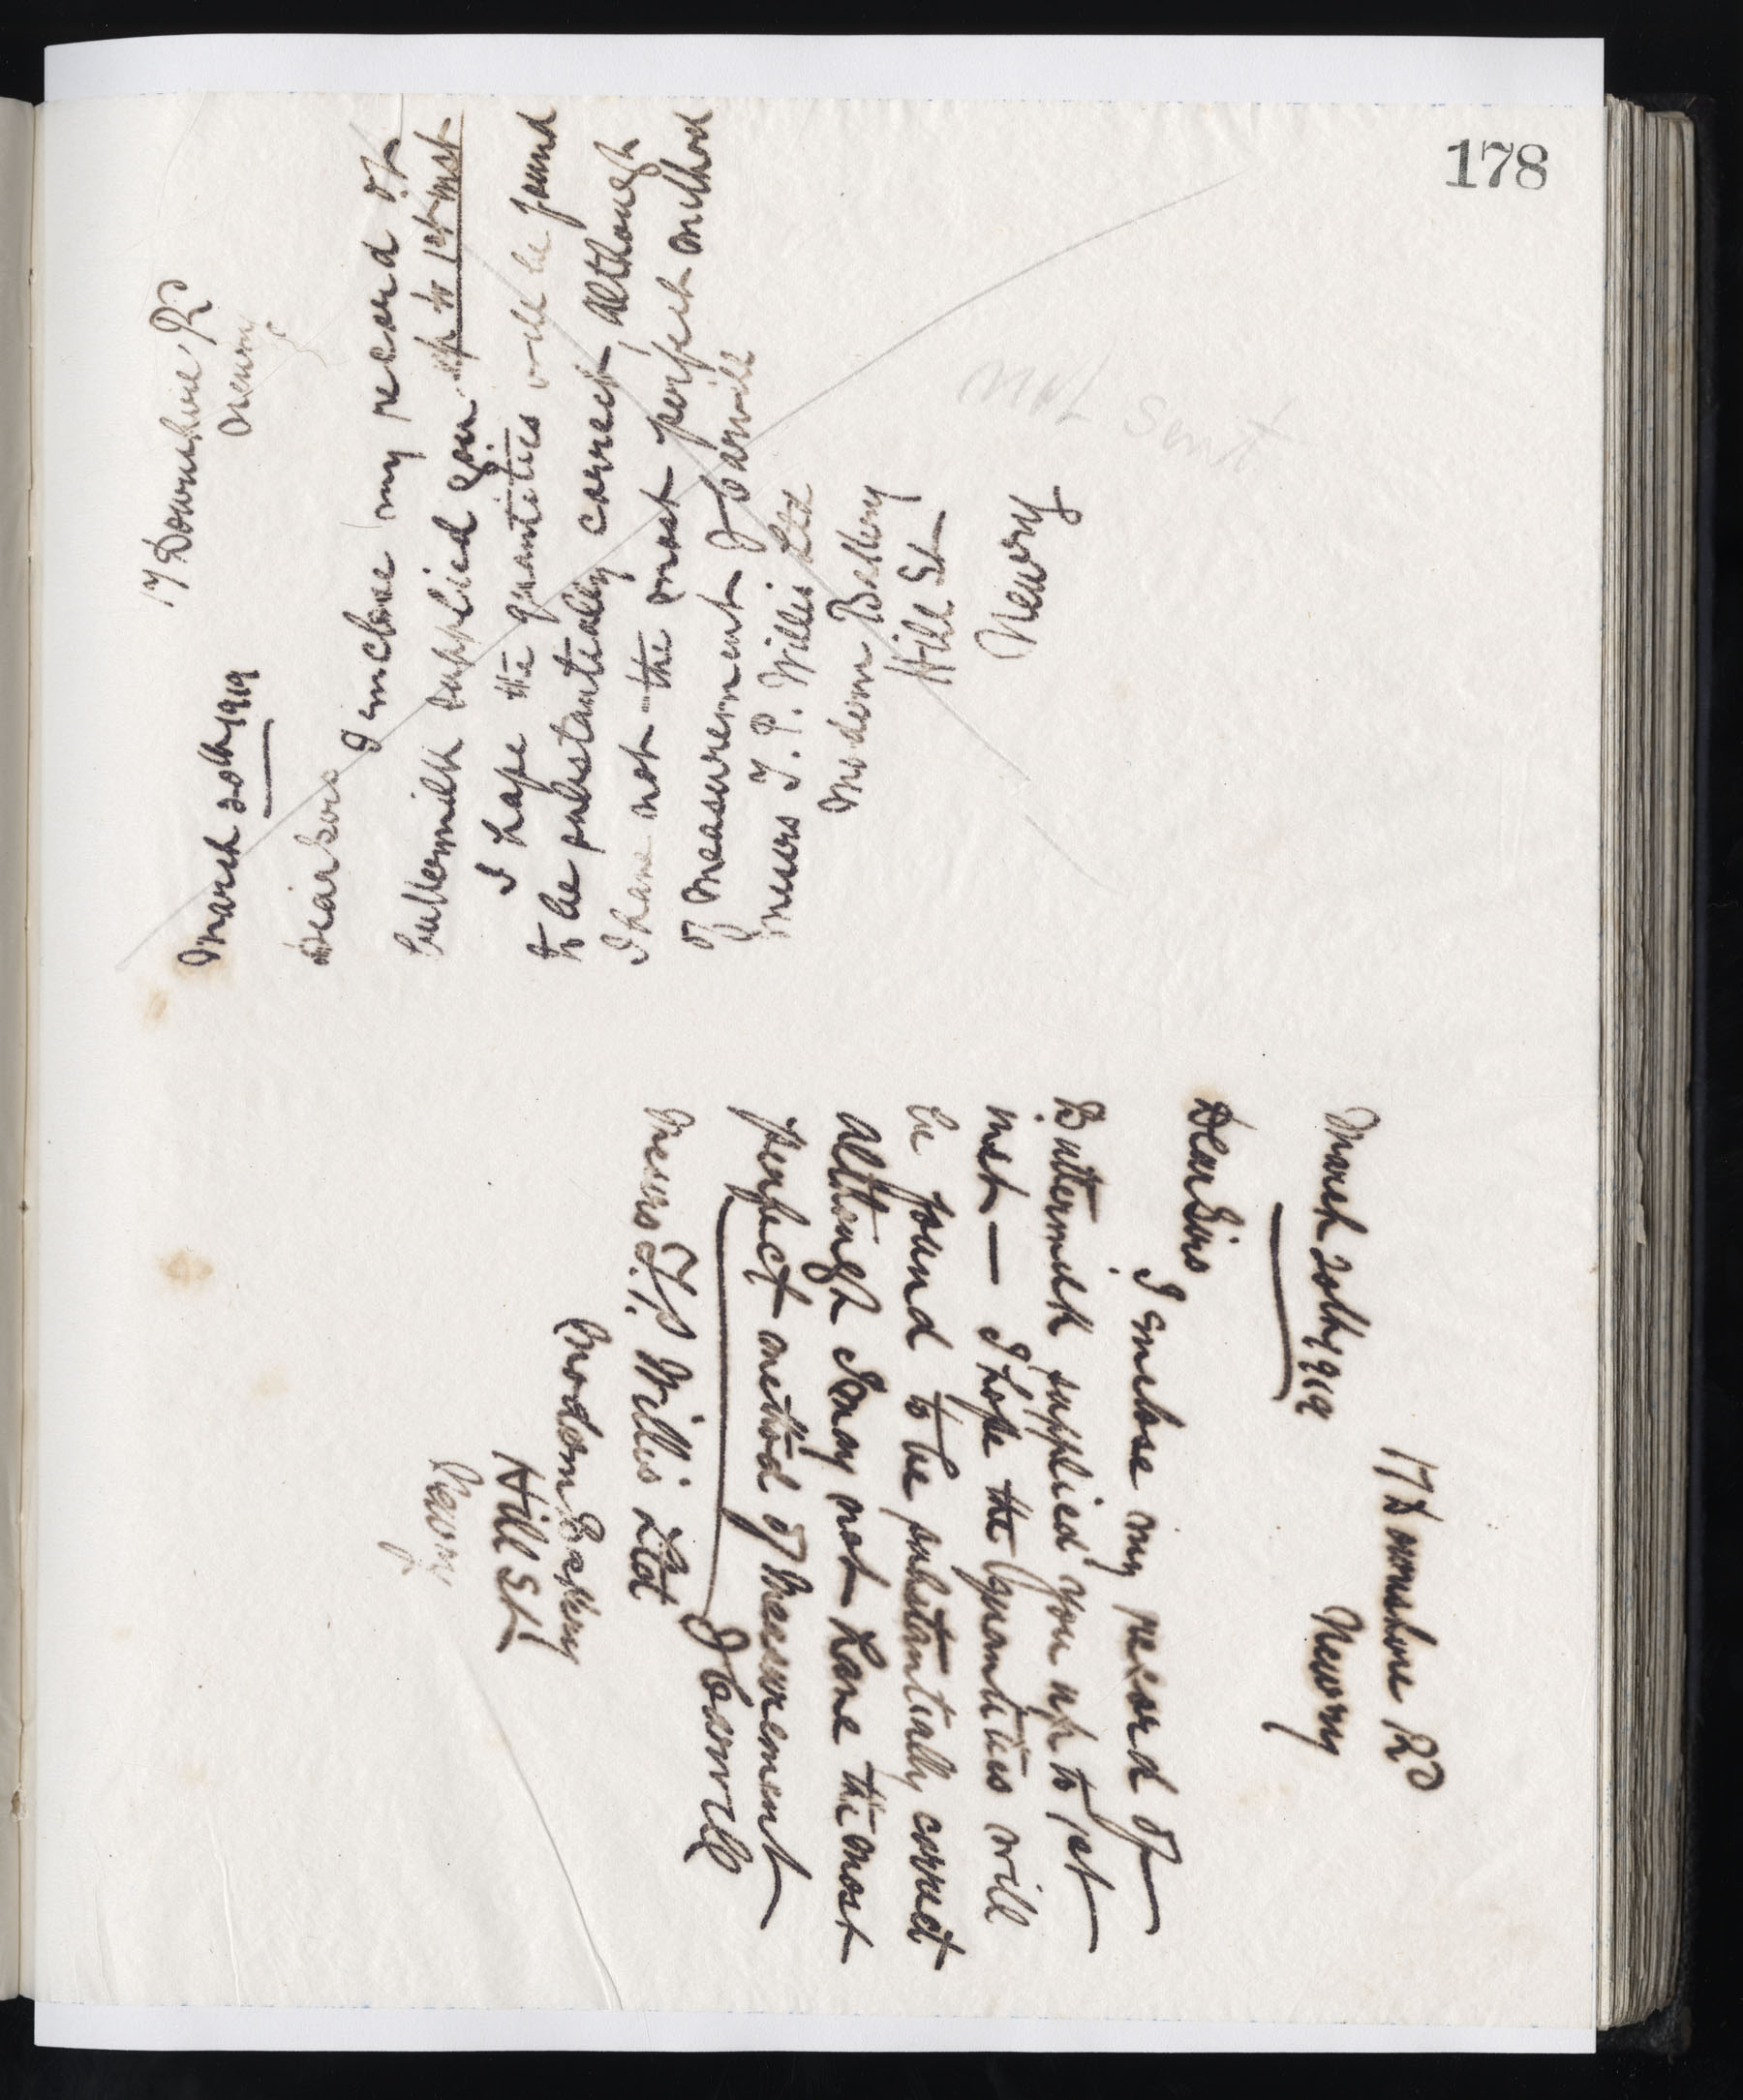 178
17 Downshire Rd
Newry
March 20th 1919
Dear Sirs
I enclose my record of
Buttermilk supplied you up to 1st inst
I hope the quantities will be found
to be substantially correct, although
I have not the most perfect method
of measurement J
Messrs T. P. Willis Ltd
Modern Bakery
Hill St
Newry
not sent
17 Downshire Rd
Newry
March 20th 1919
Dear Sirs
I enclose my record of
Buttermilk supplied you up to 1st
inst — I hope the quantities will
be found to be substantially correct
although I may not have the most
perfect method of measurement
J
Messrs T. P. Willis Ltd
Modern Bakery
Hill St
Newry